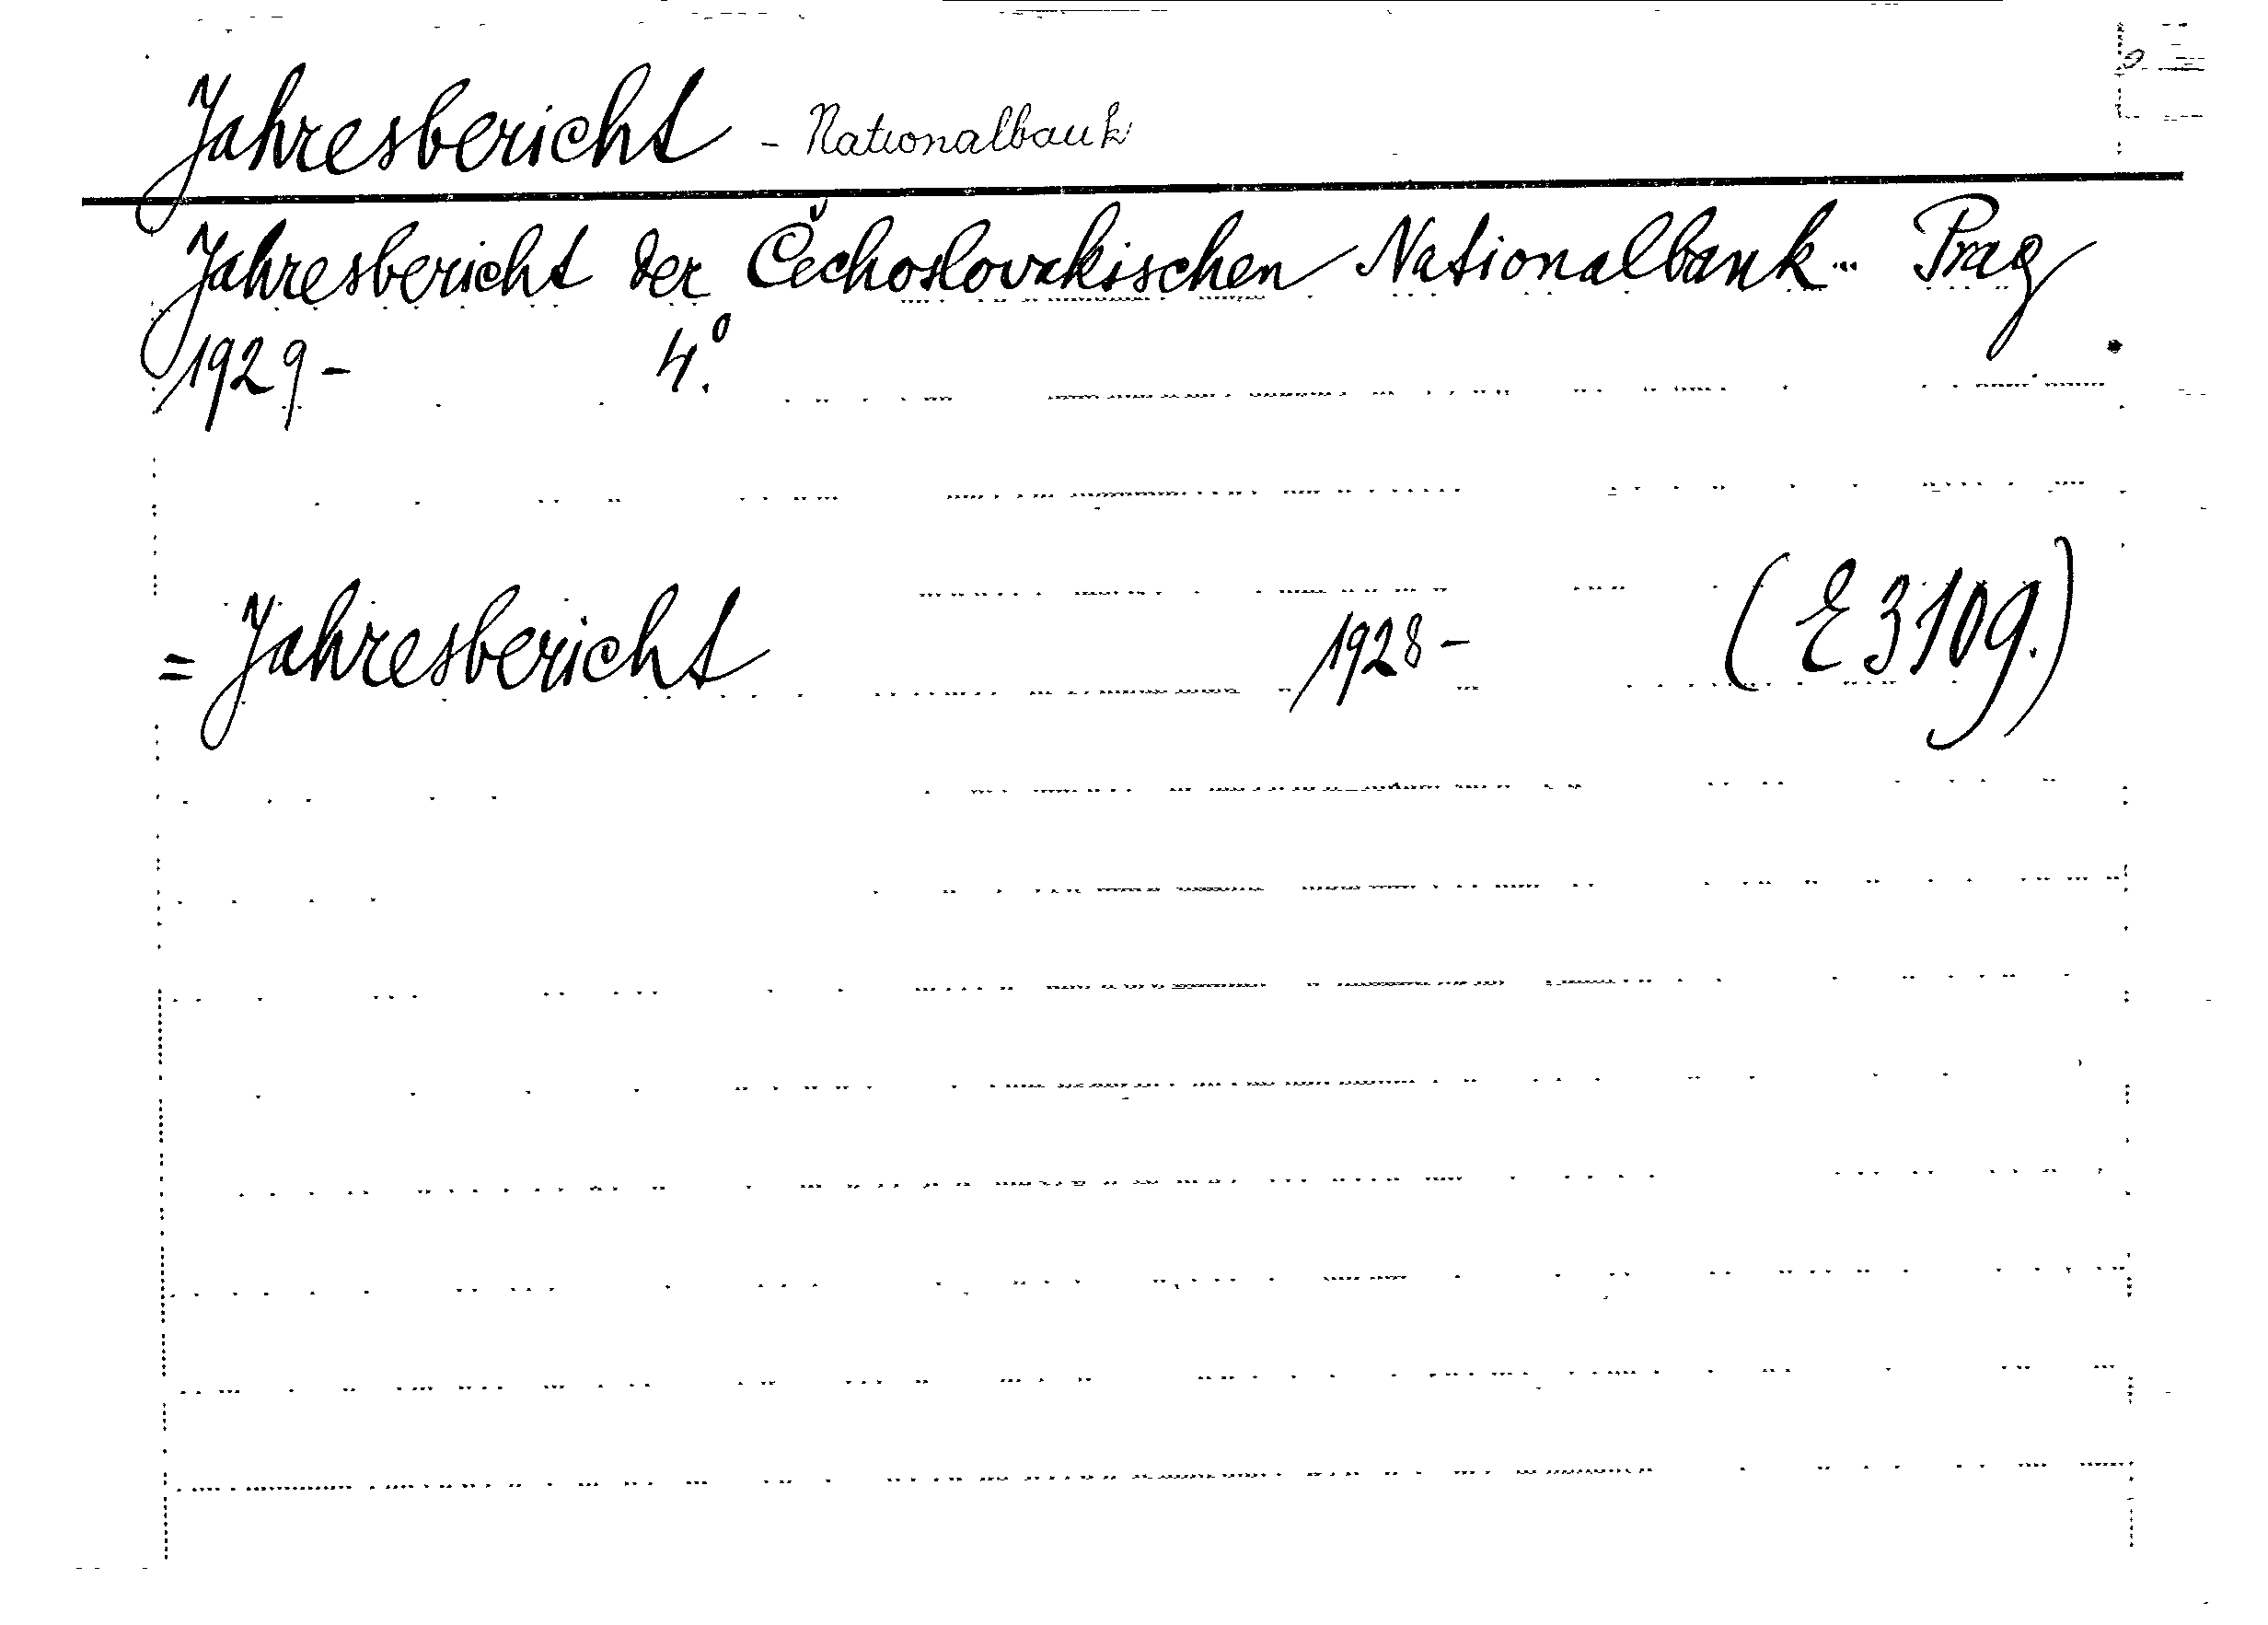 Jahresbericht - Nationalbank
Jahresbericht der Čechoslovakischen Nationalbank... Prag
1929- 4.º
= Jahresbericht 1928- (E 3109.)